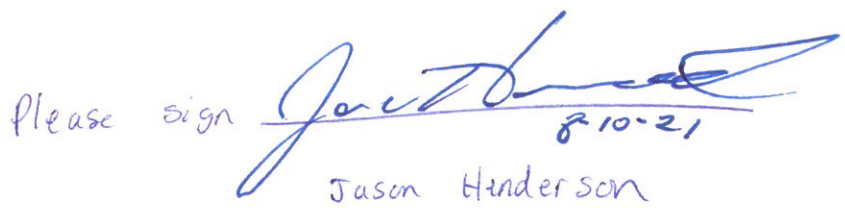 Please sign
8-10-21
Jason Henderson